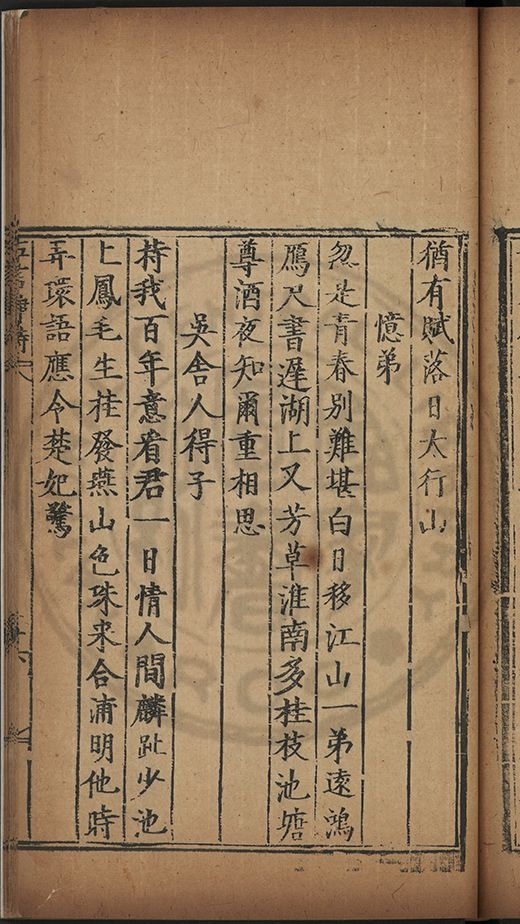 猶有賦落日太行山
憶弟
忽是青春別難堪白日移江山一弟遠鴻
鴈尺書遲湖上又芳草淮南多桂枝池塘
尊酒夜知爾重相思
吳舍人得子
持我百年意看君一日情人間麟趾少池
上鳳毛生桂發燕山色珠来合浦明他時
弄環語應令楚妃驚